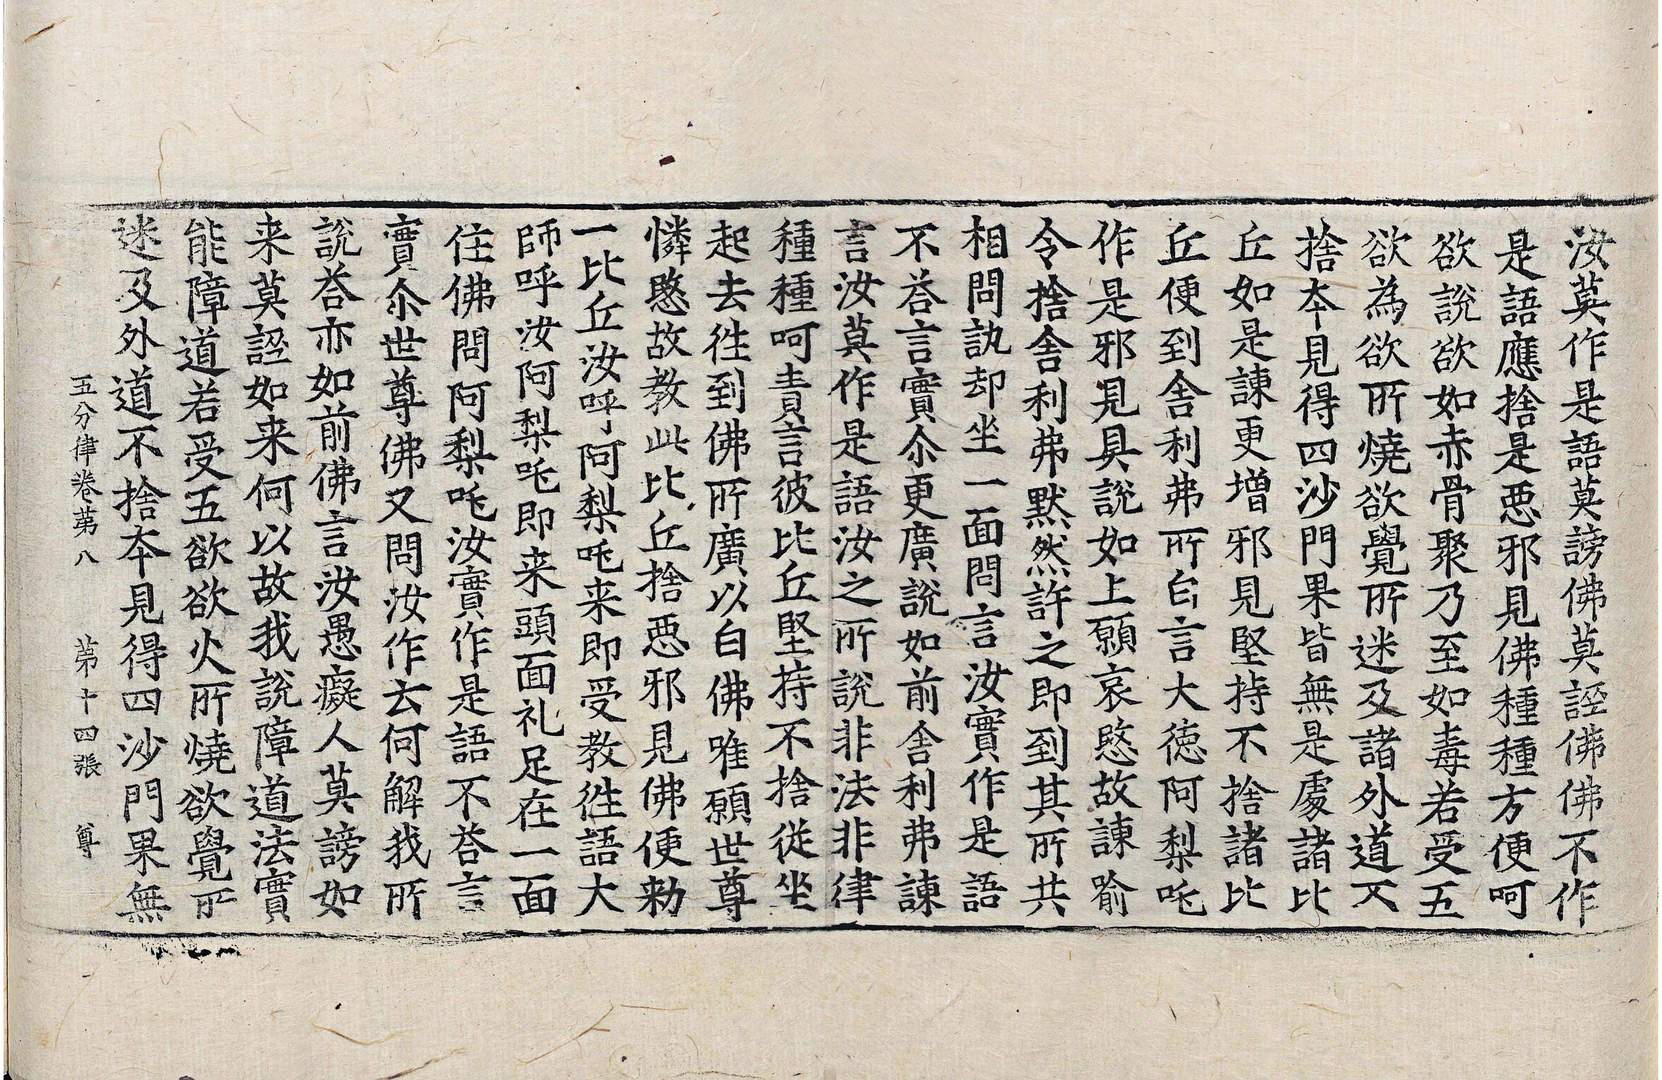 汝莫作是語莫謗佛莫誣佛佛不作
是語應捨是惡邪見佛種種方便呵
欲說欲如赤骨聚乃至如毒若受五
欲為欲所燒欲覺所迷及諸外道不
捨夲見得四沙門果皆無是處諸比
丘如是諫更增邪見堅持不捨諸比
丘便到舍利弗所白言大徳阿梨吒
作是邪見具說如上願哀愍故諫喻
令捨舍利弗默然許之即到其所共
相問訊却坐一面問言汝實作是語
不荅言實尒更廣說如前舍利弗諫
言汝莫作是語汝之所說非法非律
種種呵責言彼比丘堅持不捨從坐
起去徃到佛所廣以白佛唯願世尊
憐愍故教此比丘捨惡邪見佛便勑
一比丘汝呼阿梨吒来即受教徃語大
師呼汝阿梨吒即来頭面礼足在一面
住佛問阿梨吒汝實作是語不荅言
實尒世尊佛又問汝作云何解我所
說荅亦如前佛言汝愚癡人莫謗如
来莫誣如来何以故我說障道法實
能障道若受五欲欲火所燒欲覺所
迷及外道不捨夲見得四沙門果無
五分律卷苐八 苐十四張 尊